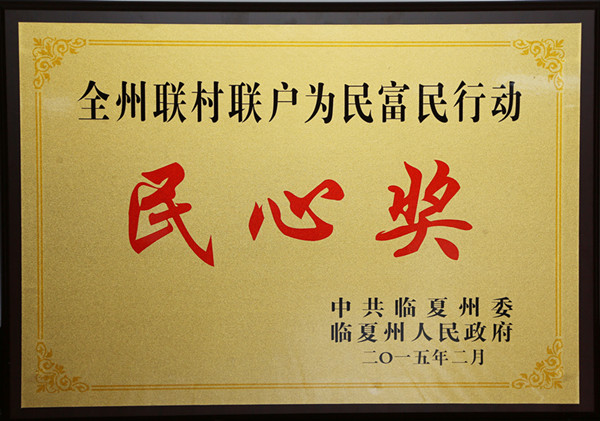 全州联村联户为民富民行动
民心奖
中共临夏州委
临夏州人民政府
二〇一五年二月